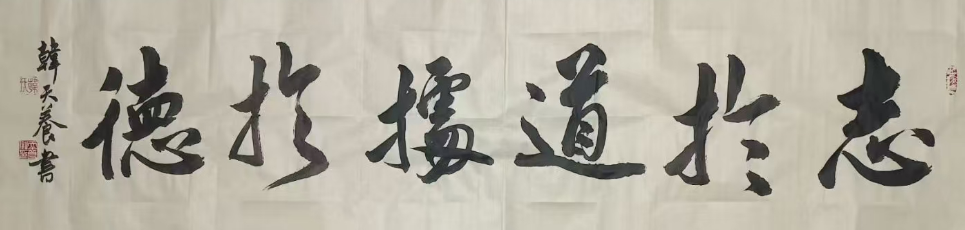 志於道據於德
韓天養書